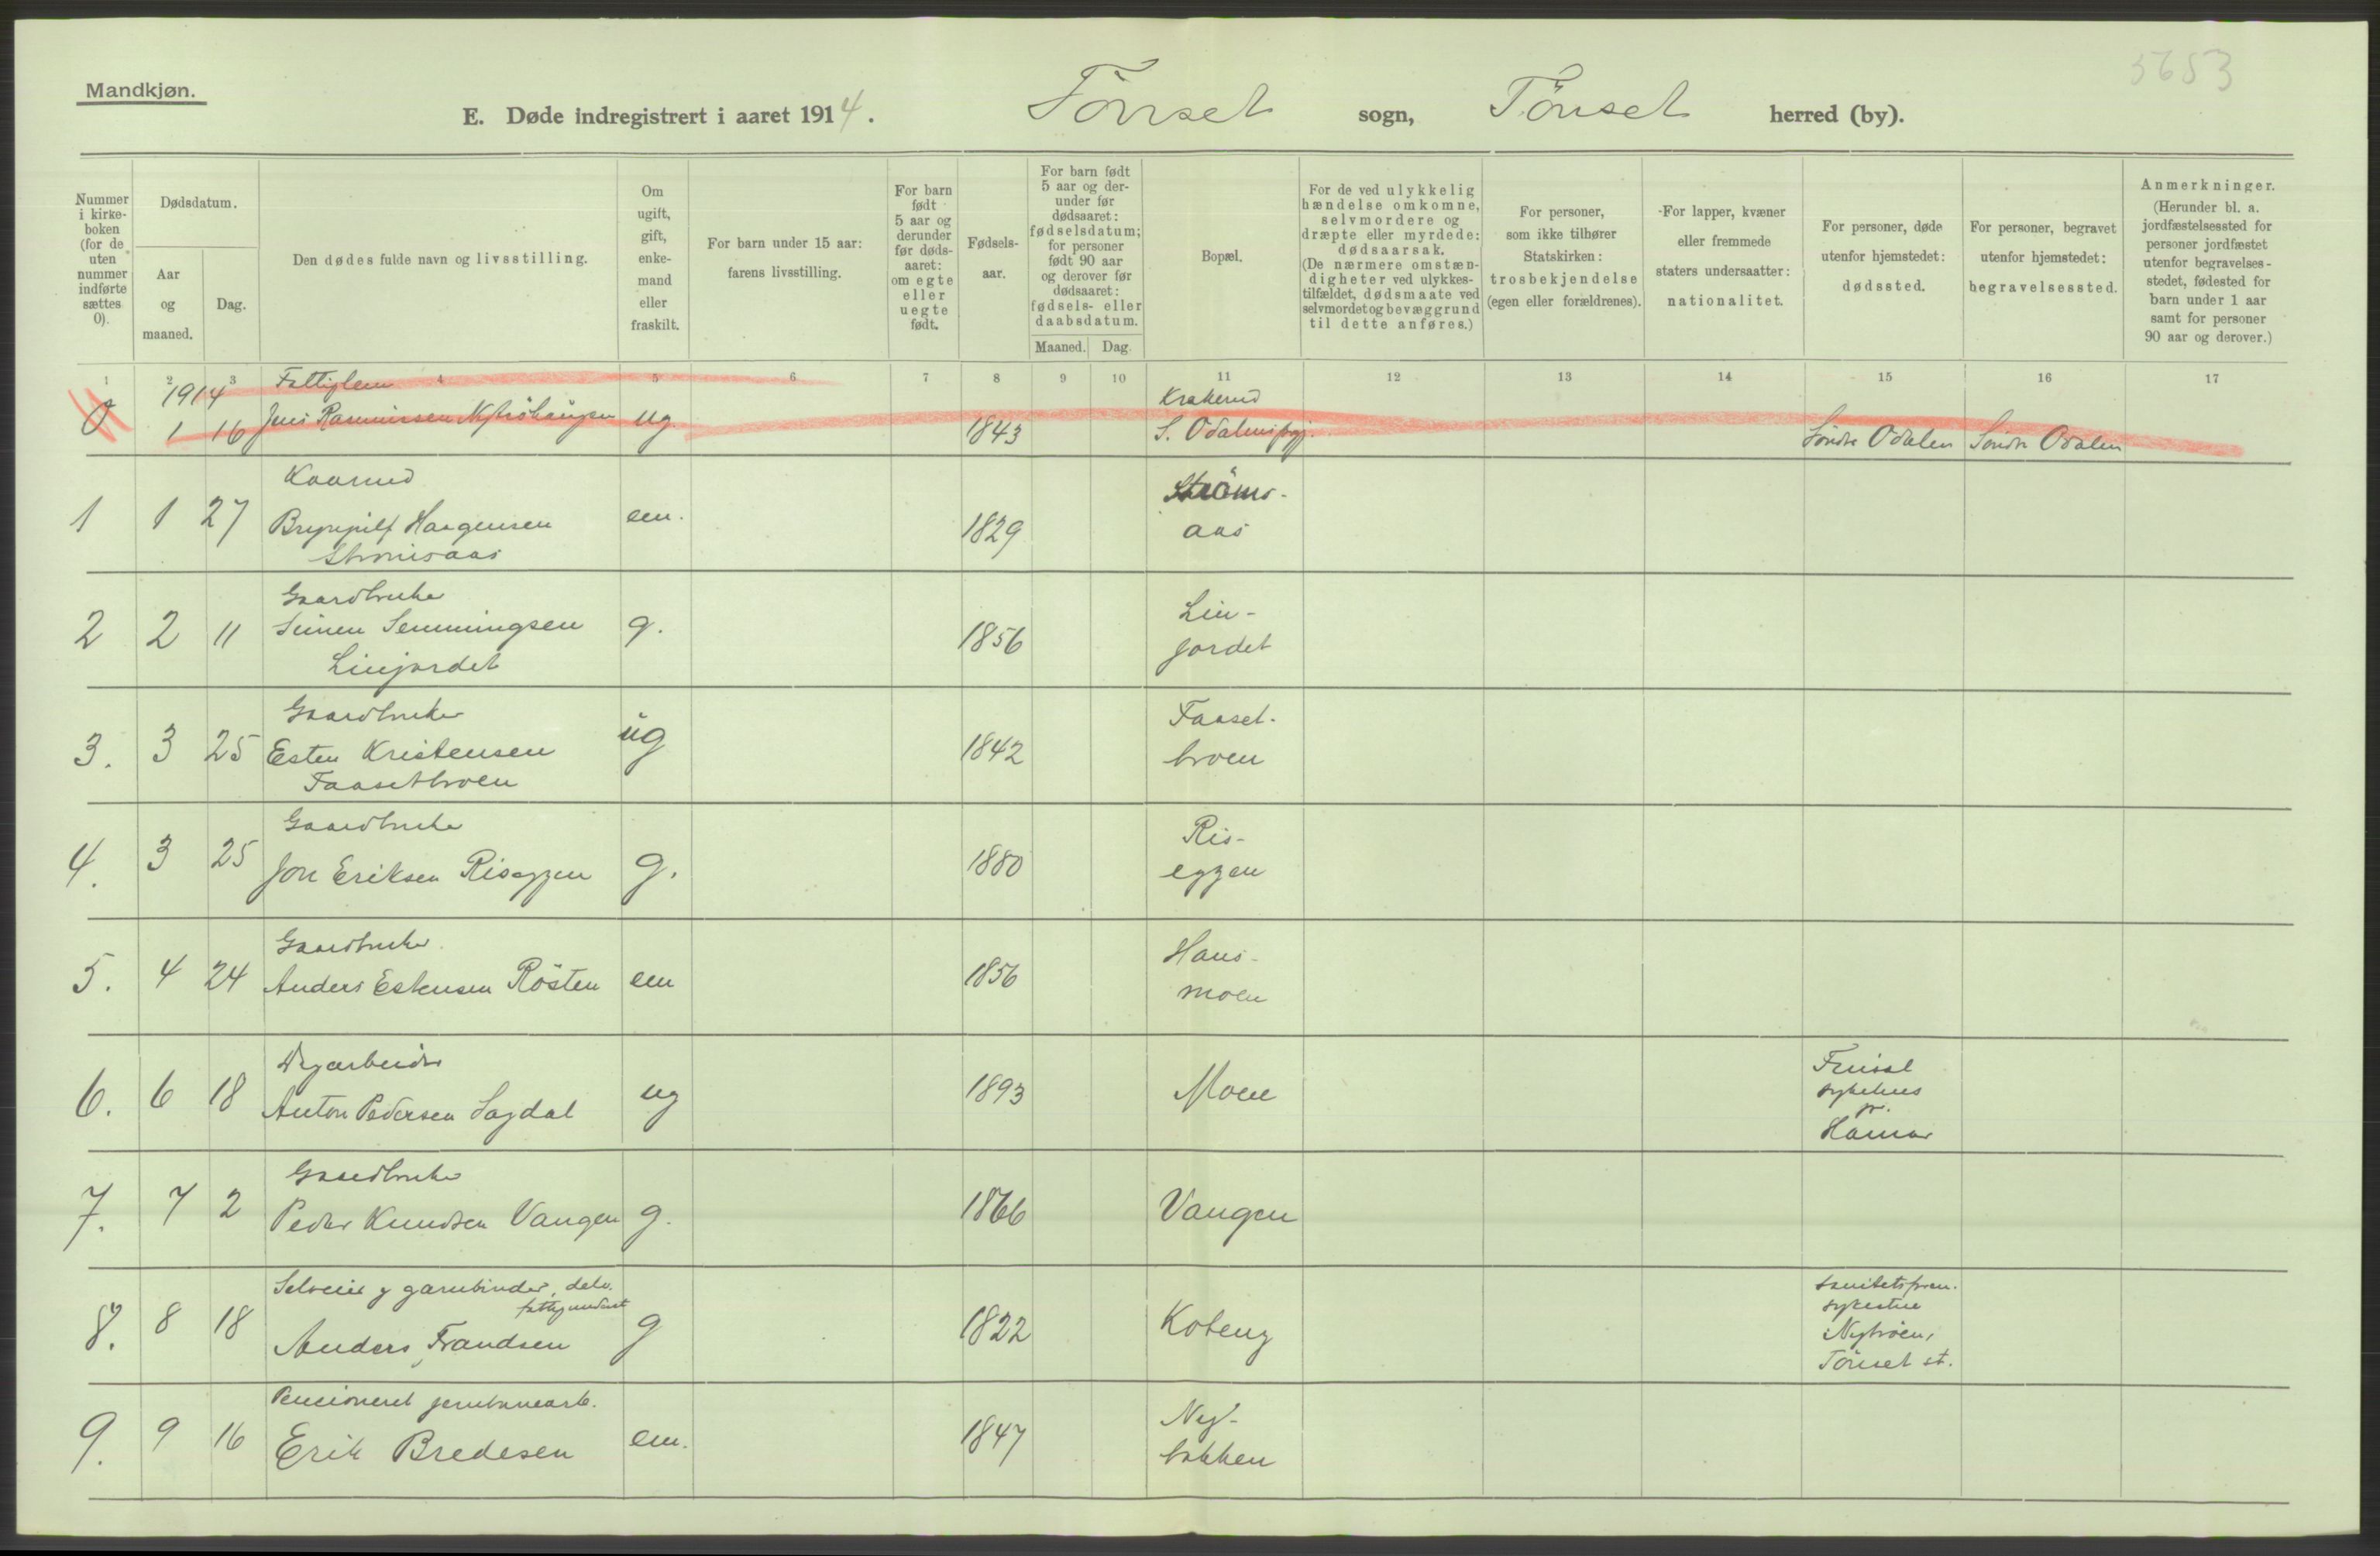 5653
Mandkjøn.
E. Døde indregistrert i aaret 1914. Tönset sogn, Tönset herred (by).
Nummer i kirkeboken (for de uten nummer indførte sættes 0).
Dødsdatum.
Aar og maaned.
Dag.
Den dødes fulde navn og livsstilling.
Om ugift, gift, enkemand eller fraskilt.
For barn under 15 aar: farens livsstilling.
For barn født 5 aar og derunder før dødsaaret: om egte eller uegte født.
Fødselsaar.
For barn født 5 aar og derunder før dødsaaret: fødselsdatum; for personer født 90 aar og derover før dødsaaret: fødsels- eller daabsdatum.
Maaned. Dag.
Bopæl.
For de ved ulykkelig hændelse omkomne, selvmordere og dræpte eller myrdede: dødsaarsak. (De nærmere omstændigheter ved ulykkestilfældet, dødsmaate ved selvmordet og bevæggrund til dette anføres.)
For personer, som ikke tilhører Statskirken: trosbekjendelse (egen eller forældrenes).
For lapper, kvæner eller fremmede staters undersaatter: nationalitet.
For personer, døde utenfor hjemstedet: dødssted.
For personer, begravet utenfor hjemstedet: begravelsessted.
Anmerkninger. (Herunder bl. a. jordfæstelsessted for personer jordfæstet utenfor begravelsesstedet, fødested for barn under 1 aar samt for personer 90 aar og derover.)
1 2 3 4 5 6 7 8 9 10 11 12 13 14 15 16 17
1914 Fattiglem Krakerud
0 1 16 Jens Rasmussen ug. 1843 S. Odalens Söndre Odalen Söndre Odalen
Kaarmd Ströms-
1 1 27 Brynjulf Haagensen em. 1829 aas
Strömsaas
Gaardbruker Lin-
2 2 11 Simen Semmingsen g. 1856 jordet
Linjordet
Gaardbruker Faaset-
3. 3 25 Esten Kristensen ug 1842 broen
Faasetbroen
Gaardbruker Ris-
4. 3 25 Jon Eriksen Riseggen g. 1880 eggen
Gaardbruker Haus-
5. 4 24 Anders Estensen Rösten em 1856 moen
Veiarbeider
6. 6 18 Anton Pedersen Sagdal ug 1893 Moen
sykehus
Hamar
Gaardbruker
7. 7 2 Peder Knudsen Vangen g. 1866 Vangen
Selveier og garnbinder, delv.
fattigunderst
8. 8 18 Anders Frandsen g 1822 Koteng
Sanitetsforen.
sykestue
Nybroen,
Tönset st.
Pensioneret jernbanearb. Ny-
9. 9 16 Erik Bredesen em. 1847 bakken